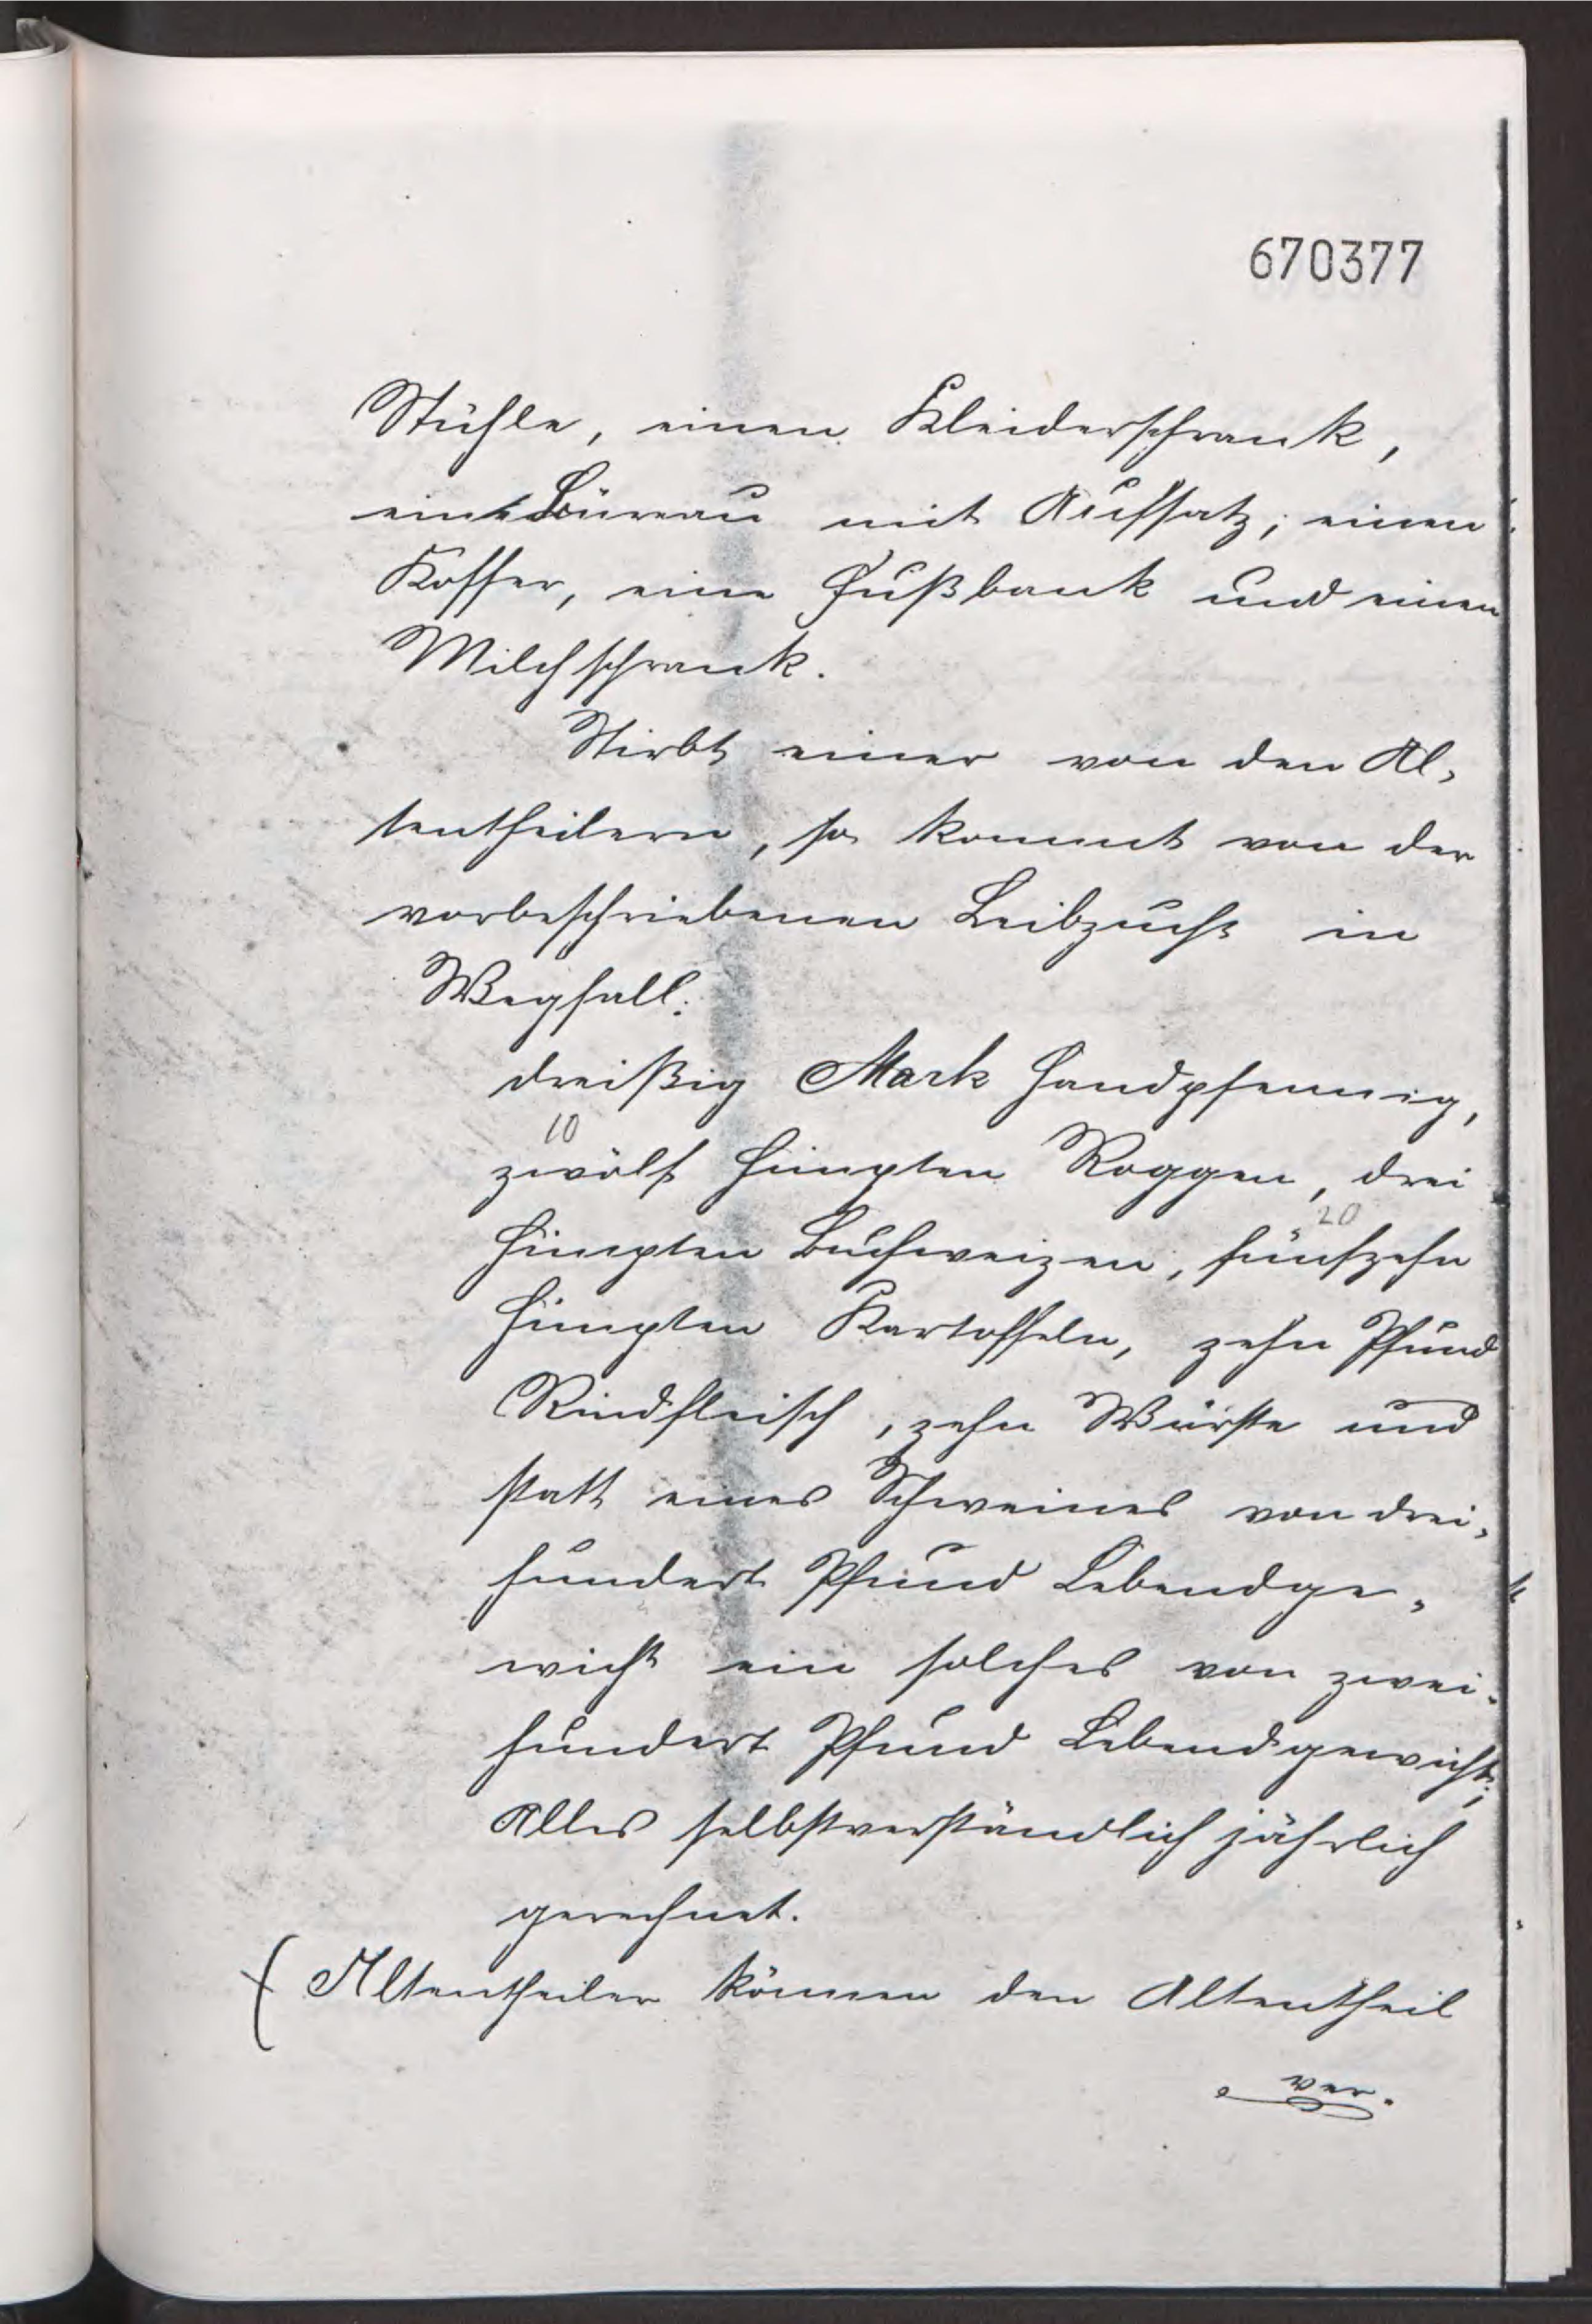 670377
Stühle, einen Kleiderschrank,
ein Büreau mit Aufsatz, einen
Koffer, eine Fußbank und einen
Milchschrank.
Stirbt einer von den Al-
tentheilern, so kommt von der
vorbeschriebenen Leibzucht in
Wegfall:
dreißig Mark Handpfennig,
10
zwölf Himpten Roggen, drei
20
Himpten Buchweizen, fünfzehn
Himpten Kartoffeln, zehn Pfund
Rindfleisch, zehn Würste und
statt eines Schweines von drei-
hundert Pfund Lebendge-
wicht ein solches von zwei-
hundert Pfund Lebendgewicht;
Alles selbstverständlich jährlich
gerechnet.
( Altentheiler können den Altentheil
ver-